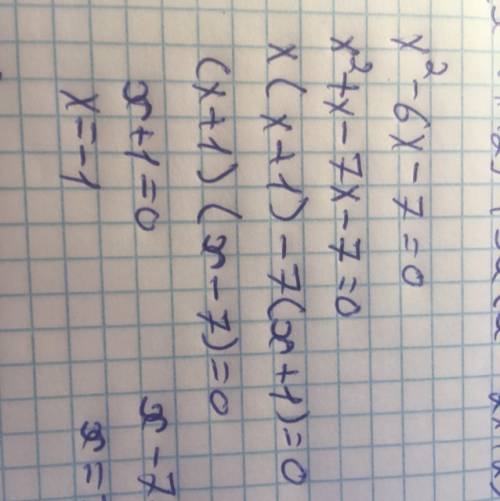 x² - 6x - 7 = 0
x² + x - 7x - 7 = 0
x(x+1) - 7(x+1) = 0
(x+1)(x-7) = 0
x+1=0 x-7
x=-1 x=